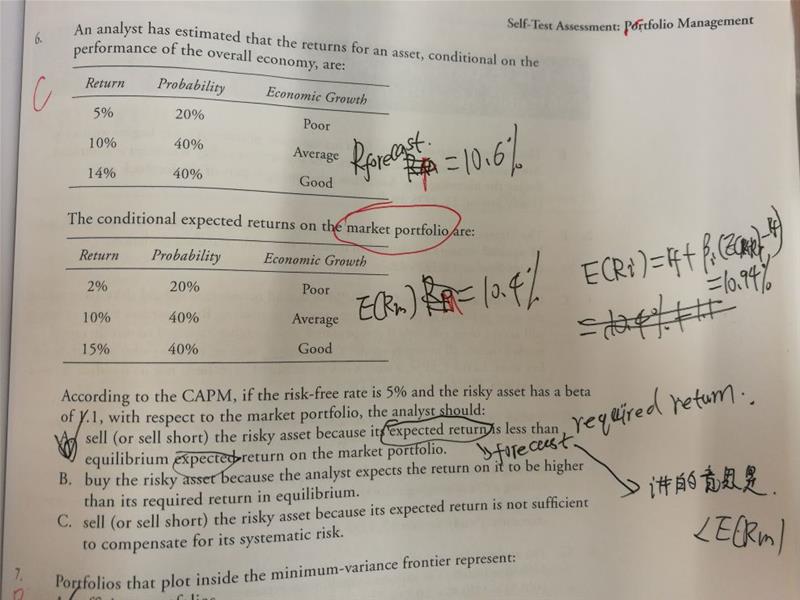 Self-Test Assessment: Portfolio Management
6.
An analyst has estimated that the returns for an asset, conditional on the
performance of the overall economy, are:
C
Return Probability Economic Growth
5% 20% Poor
10% 40% Average
14% 40% Good
Rforecast = 10.6%
The conditional expected returns on the market portfolio are:
Return Probability Economic Growth
2% 20% Poor
10% 40% Average
15% 40% Good
E(Rm) = 10.4%
= 10.94%
According to the CAPM, if the risk-free rate is 5% and the risky asset has a beta
of 1.1, with respect to the market portfolio, the analyst should:
A. sell (or sell short) the risky asset because its expected return is less than
equilibrium expected return on the market portfolio.
required return.
forecast
讲的意思是
<E(Rm)
B. buy the risky asset because the analyst expects the return on it to be higher
than its required return in equilibrium.
C. sell (or sell short) the risky asset because its expected return is not sufficient
to compensate for its systematic risk.
7.
Portfolios that plot inside the minimum-variance frontier represent: